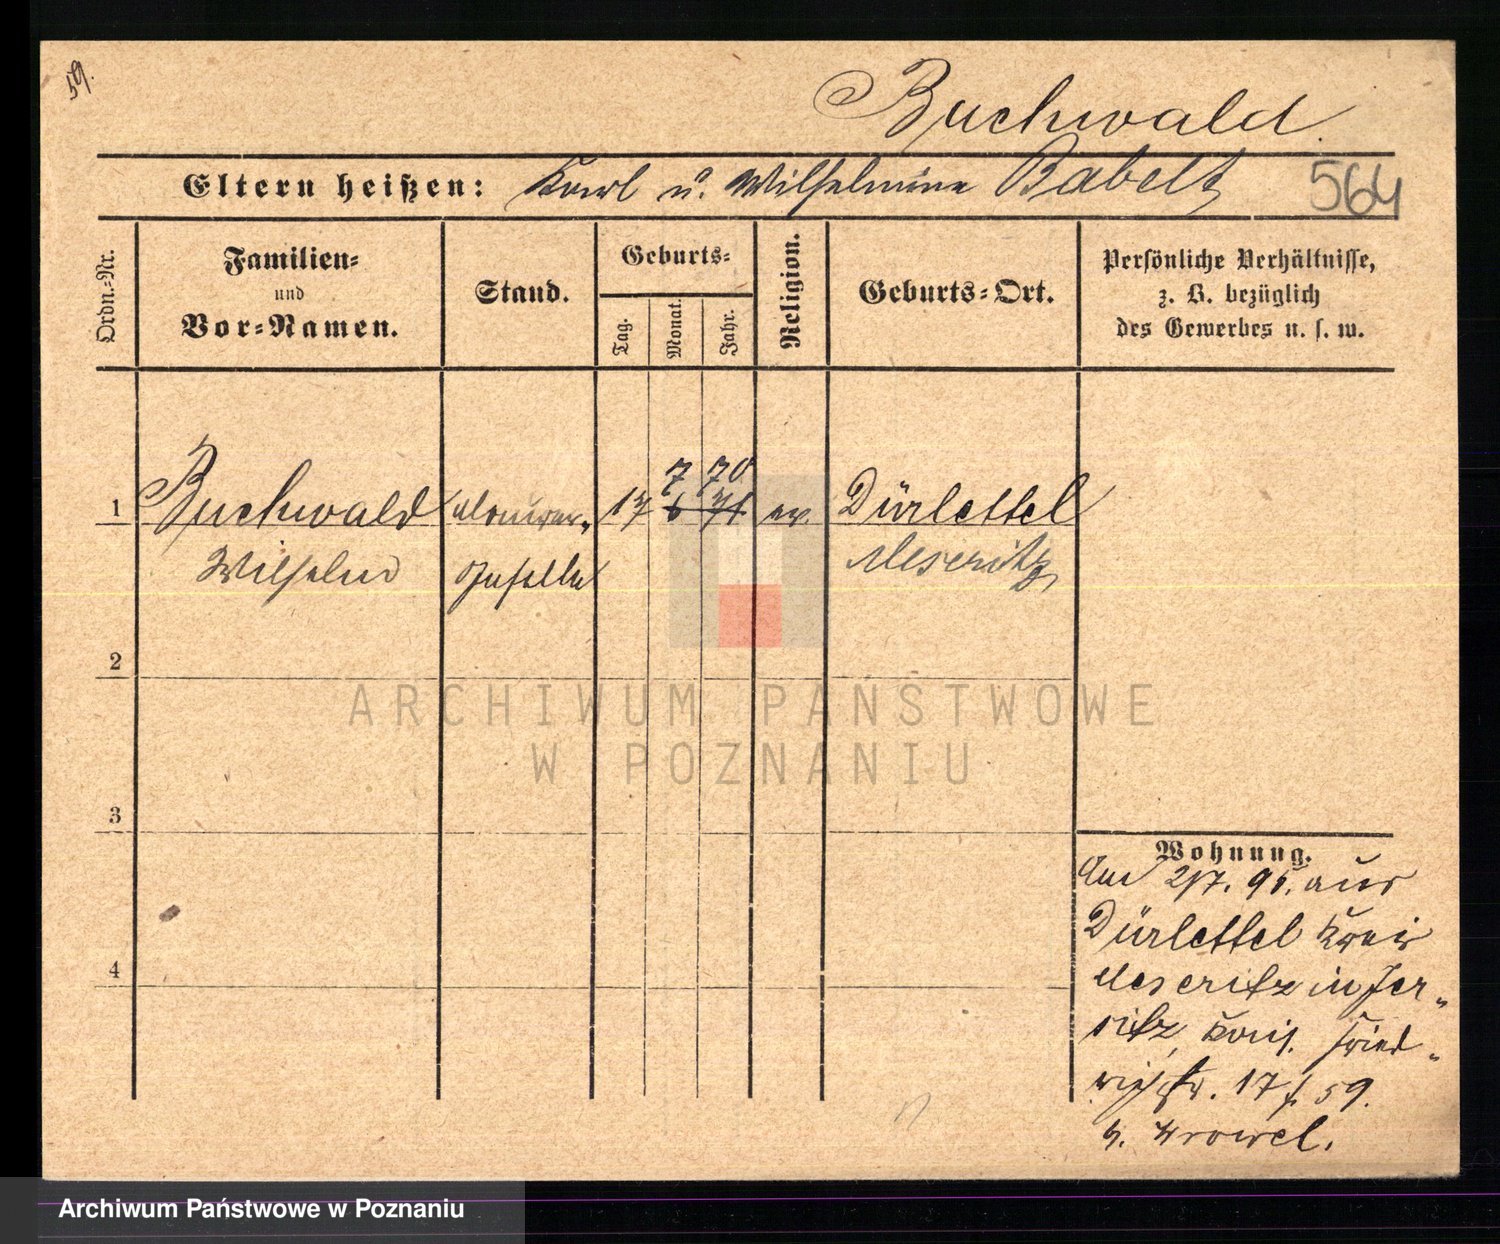 59.
Buchwald.
Eltern heißen: Karl u. Wilhelmine Babelt
564
Ordn.-Nr.
Familien-
und
Vor-Namen.
Stand.
Geburts-
Tag.
Monat.
Jahr.
Religion.
Geburts-Ort.
Persönliche Verhältnisse,
z. B. bezüglich
des Gewerbes u. s. w.
7 70
1 Buchwald 17 6 71 ev. Dürlettel
Wilhelm Meseritz
2
3
4
Wohnung.
Am 2/7. 91. aus
Dürlettel Kreis
Meseritz in Jer-
sitz, Kais. Fried-
richstr. 17 f. 59.
ARCHIWUM PAŃSTWOWE
W POZNANIU
Archiwum Państwowe w Poznaniu